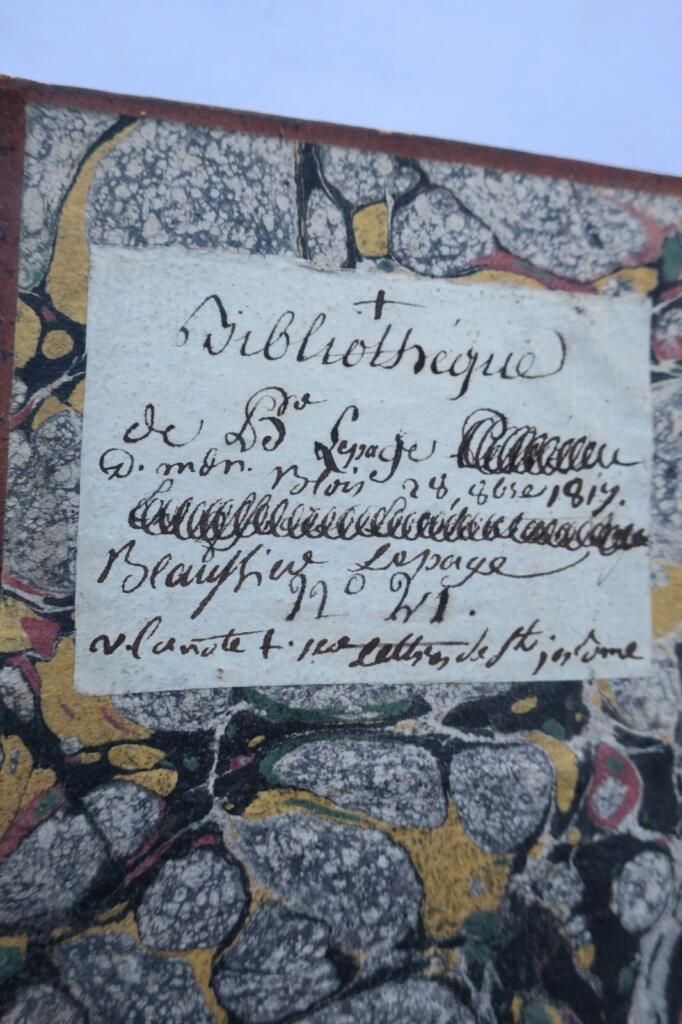 +
Bibliothéque
de Bre Lepage
D. mdn. Blois 28, 8bre 1817.
Beaussier Lepage
N° 21.
v. la note +. des Lettres de St. jerôme